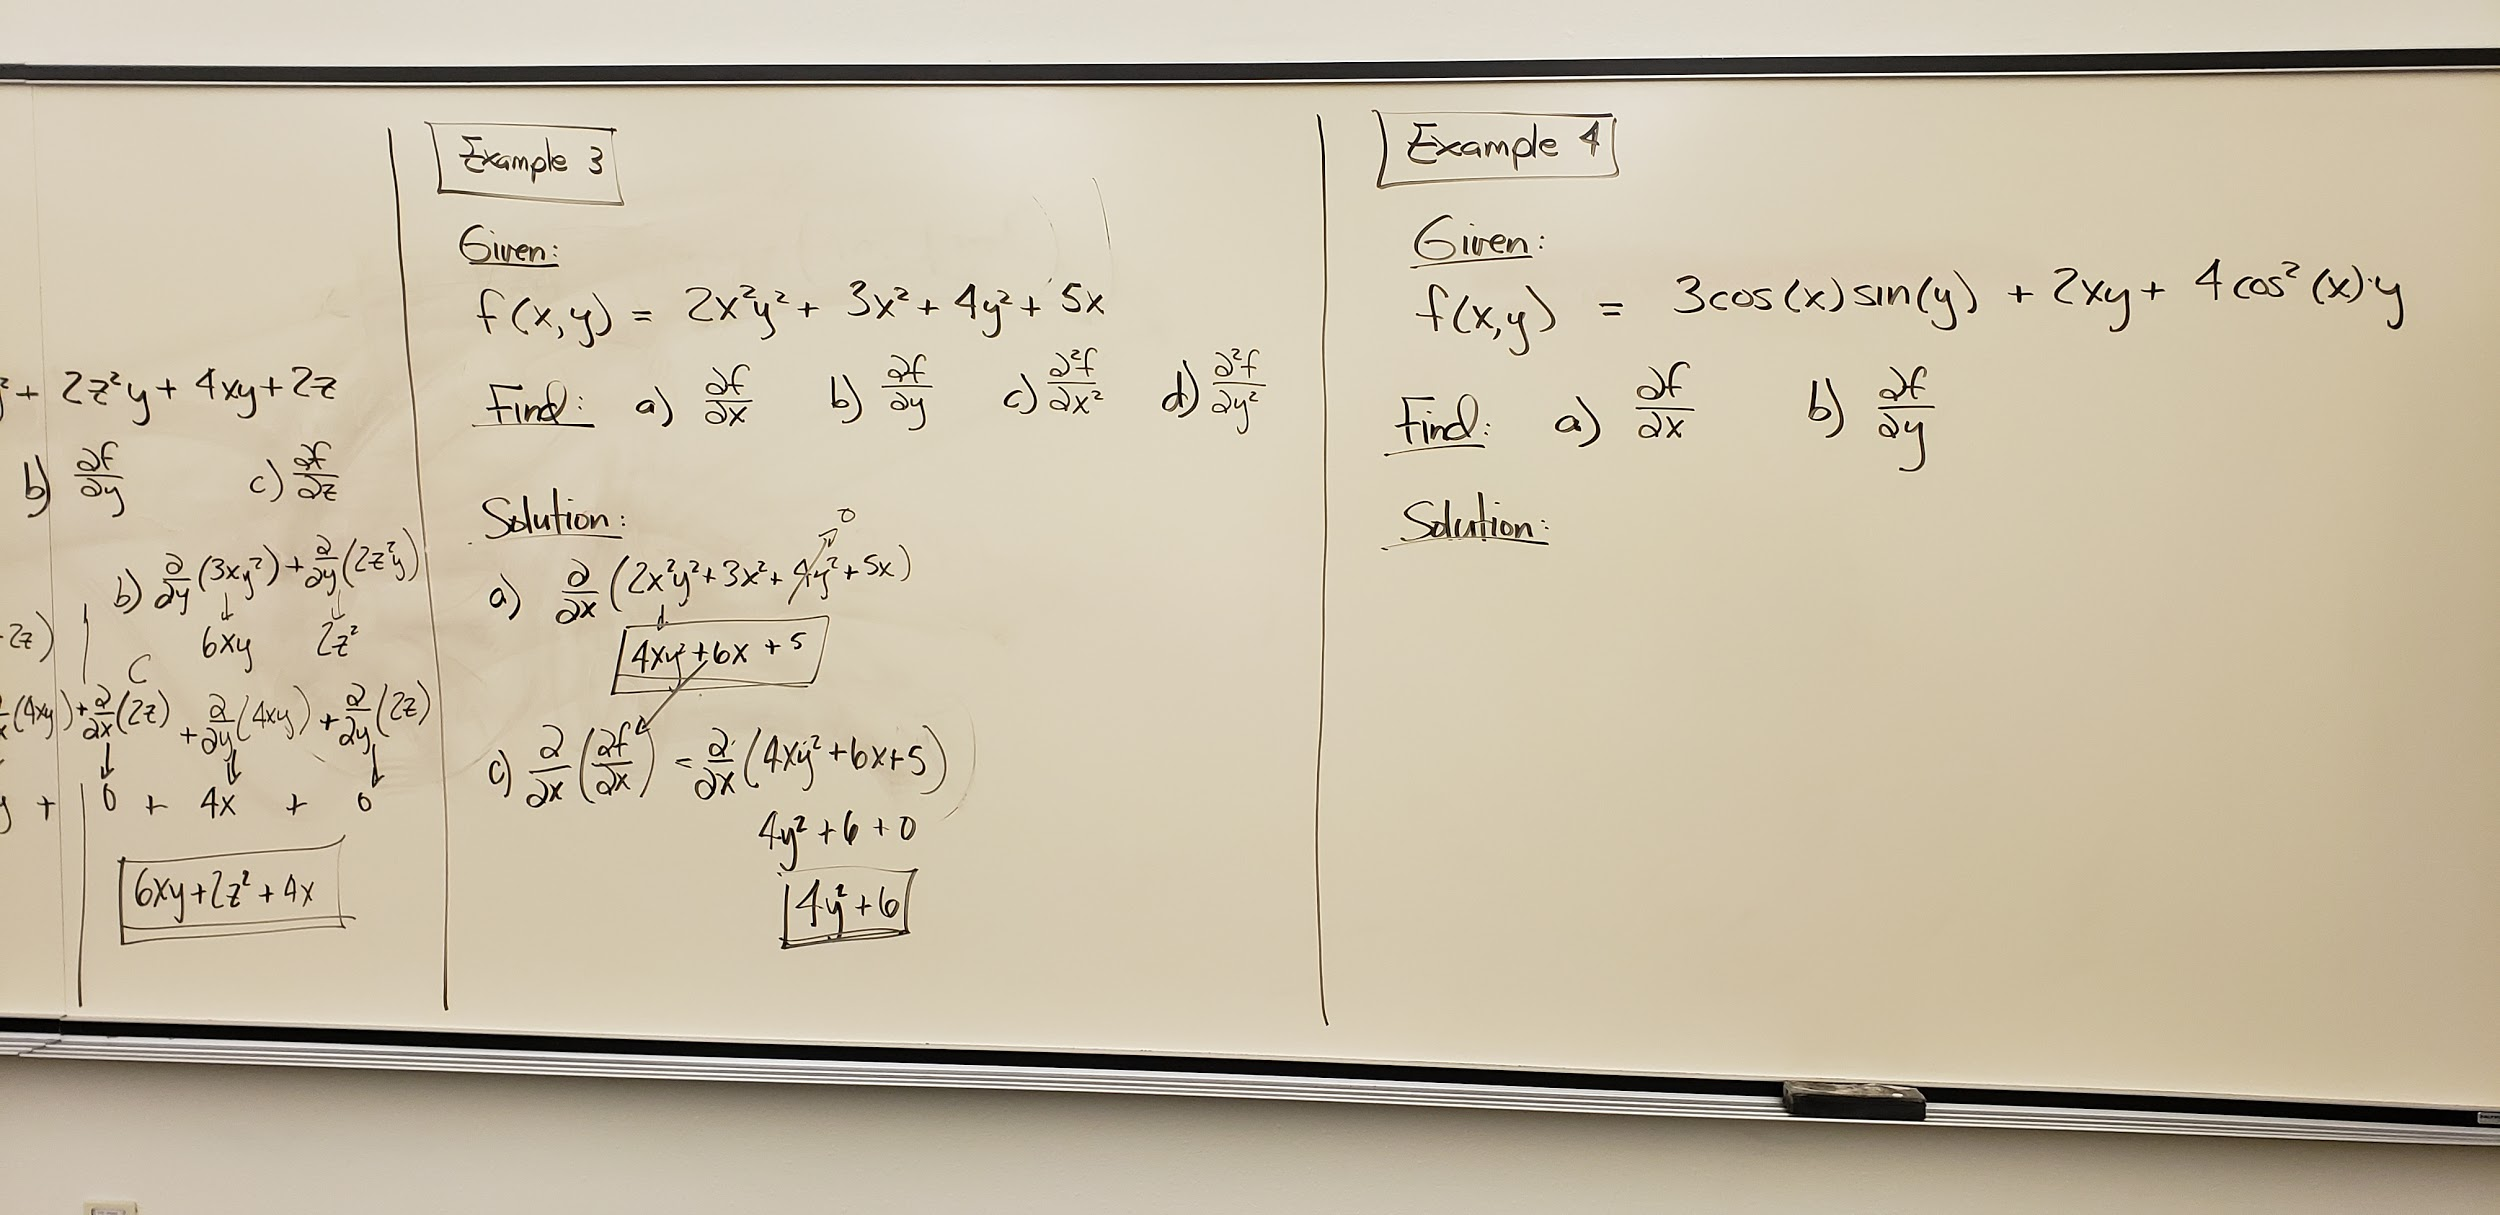 ² + 2z²y + 4xy + 2z
b) ∂f/∂y c) ∂f/∂z
b) ∂/∂y (3xy²) + ∂/∂y (2z²y)
2z) 6xy 2z²
(4xy) + ∂/∂x (2z) + ∂/∂y (4xy) + ∂/∂y (2z)
y + 0 + 4x + 0
6xy + 2z² + 4x
Example 3
Given:
f(x,y) = 2x²y² + 3x² + 4y² + 5x
Find: a) ∂f/∂x b) ∂f/∂y c) ∂²f/∂x² d) ∂²f/∂y²
Solution:
0
a) ∂/∂x (2x²y² + 3x² + 4y² + 5x)
4xy² + 6x + 5
c) ∂/∂x (∂f/∂x) = ∂/∂x (4xy² + 6x + 5)
4y² + 6 + 0
4y² + 6
Example 4
Given:
f(x,y) = 3cos(x) sin(y) + 2xy + 4 cos²(x)·y
Find: a) ∂f/∂x b) ∂f/∂y
Solution: